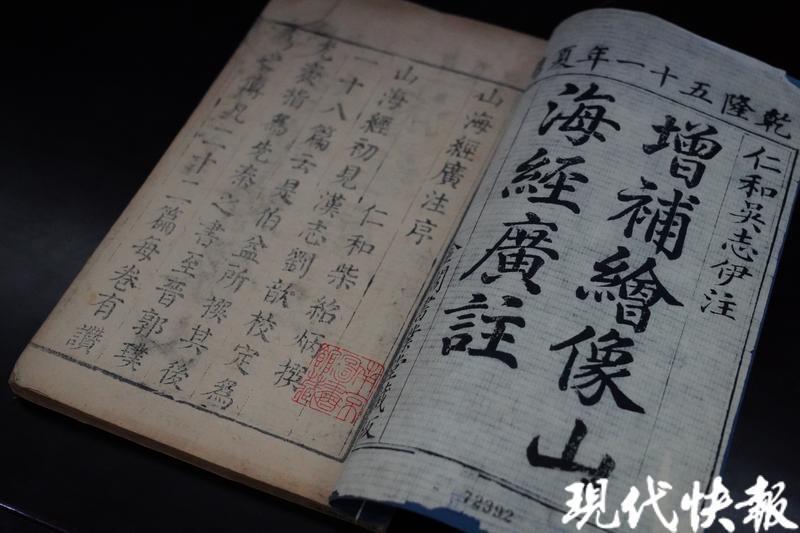 乾隆五十一年夏
仁和吳志伊注
增補繪像山
海經廣註
藏版
72392
山海經廣注序
仁和柴紹炳撰
山海經初見漢志劉歆校定爲
一十八篇云是伯益所撰其後
尤袤指爲先秦之書至晉郭璞
爲之傳凡二十二篇每卷有讚
現代快報